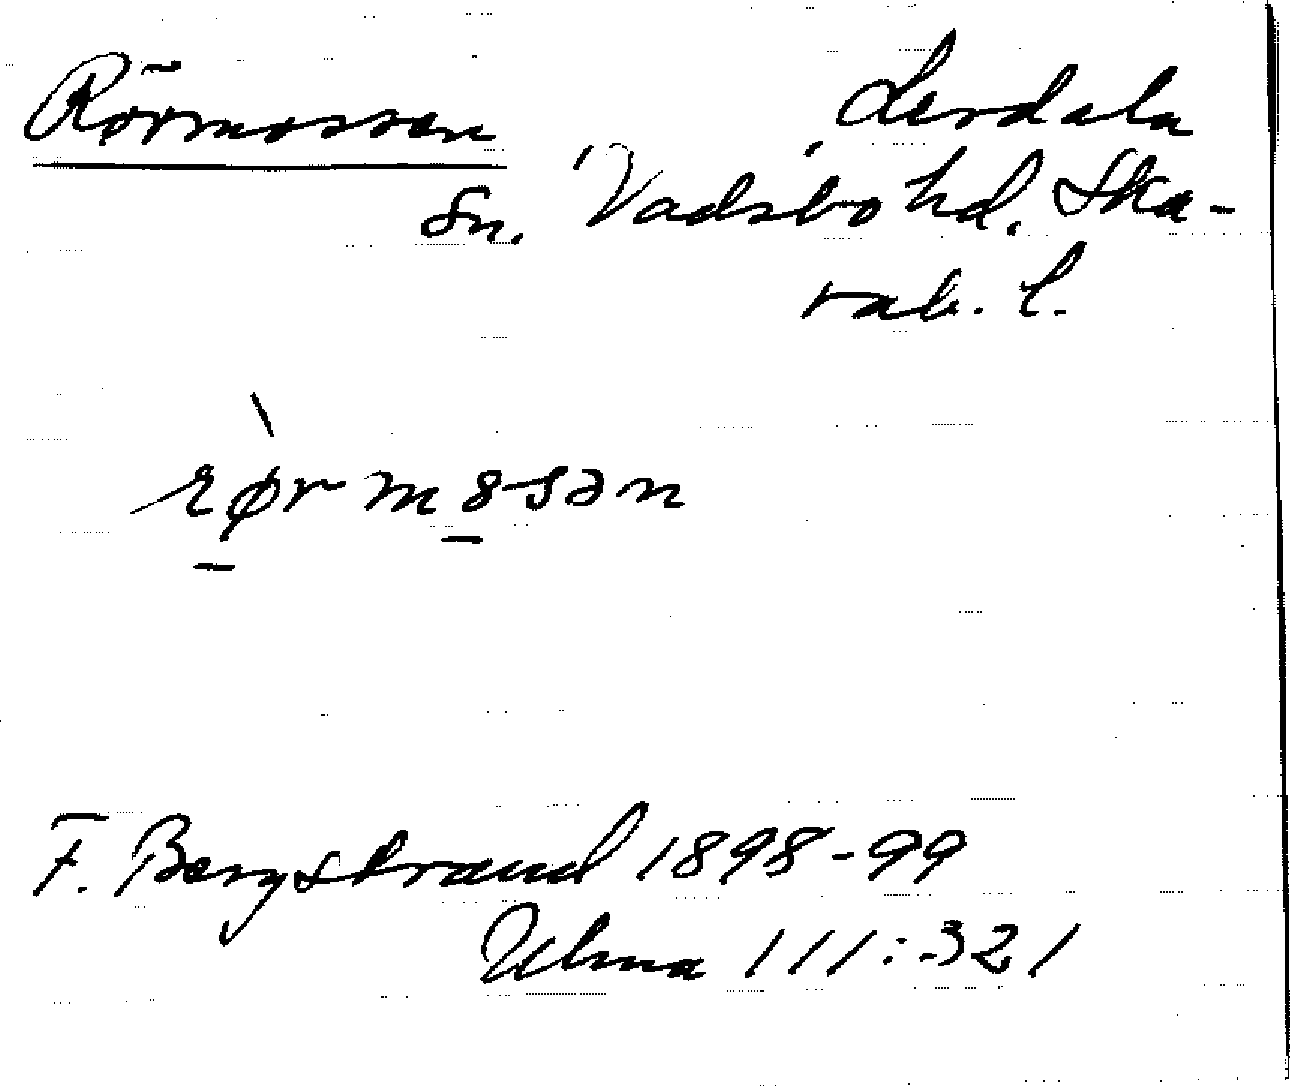 Rörmossen Lerdala
Sn. Vadsbo hd. Ska-
rab. l.
rør mosən
F. Bergstrand 1898-99
Ulma 111:321